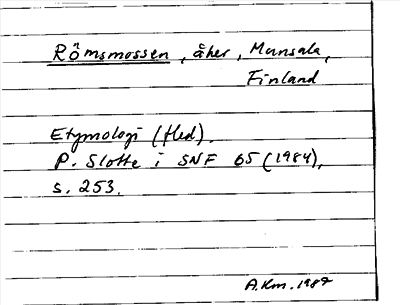 Rômsmossen, åker, Munsala,
Finland
Etymologi (fled).
P. Slotte i SNF 65 (1984),
s. 253.
A.Km. 1987